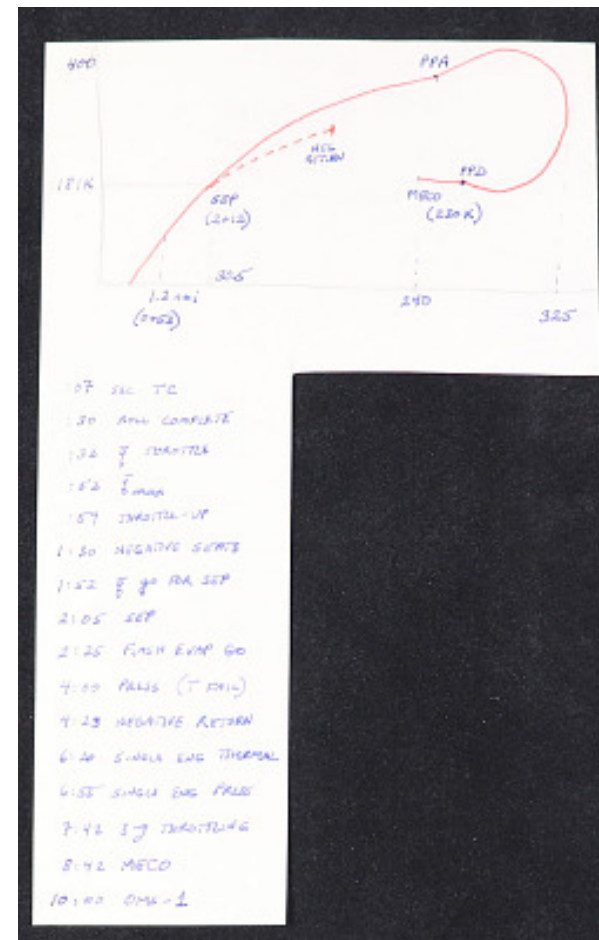 400
PPA
NEG
RETURN
181K
SEP
(2+12)
PPD
MECO
(230K)
1.2 nmi
(0+52)
240
325
:07 TC
:30 ROLL COMPLETE
:32 q̄ THROTTLE
:52 q̄ max
:59 THROTTLE-UP
1:30 NEGATIVE SEATS
1:52 q̄ go FOR SEP
2:05 SEP
2:25 FLASH EVAP GO
4:00 PRESS (T FAIL)
4:23 NEGATIVE RETURN
6:20 SINGLE ENG THERMAL
6:55 SINGLE ENG PRESS
7:42 3-g THROTTLING
8:42 MECO
10:00 OMS-1